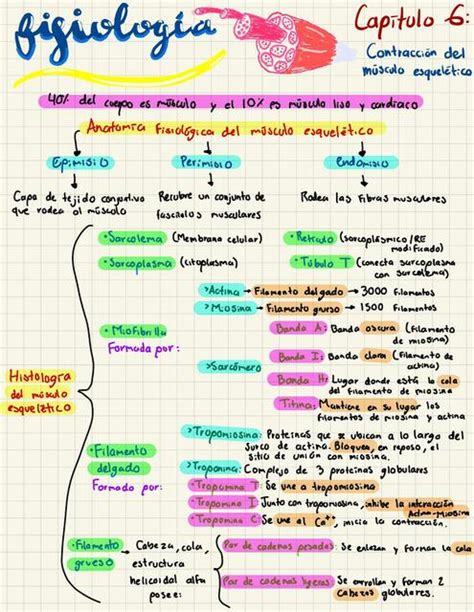 fisiología
Capitulo 6:
Contracción del
músculo esquelético
40% del cuerpo es músculo y el 10% es músculo liso y cardiaco
Anatomia fisiológica del músculo esquelético
Epimisio
Perimisio
Endomisio
Capa de tejido conjuntivo
que rodea al músculo
Recubre un conjunto de
fasciculos musculares
Rodea las fibras musculares
Histología
del músculo
esquelético
• Sarcolema (Membrana celular)
• Sarcoplasma (citoplasma)
• Retículo (sarcoplásmico / RE
modificado)
• Túbulo T (conecta sarcoplasma
con sarcolema)
• Miofibrilla
Formada por:
> Actina → Filamento delgado → 3000 filamentos
> Miosina → Filamento grueso → 1500 filamentos
> Sarcómero
Banda A: Banda oscura (filamento
de miosina)
Banda I: Banda clara (filamento de
actina)
Banda H: Lugar donde está la cola
del filamento de miosina
Titina: Mantiene en su lugar los
filamentos de miosina y actina
• Filamento
delgado
Formado por:
> Tropomiosina: Proteinas que se ubican a lo largo del
surco de actina. Bloquea, en reposo, el
sitio de unión con miosina)
> Troponina: Complejo de 3 proteinas globulares
Troponina T: Se une a tropomiosina
Troponina I: Junto con tropomiosina, inhibe la interacción
Actina-Miosina
Troponina C: Se une al Ca++, inicia la contracción.
• Filamento
grueso
→ Cabeza, cola,
estructura
helicoidal alfa
posee:
Par de cadenas pesadas: Se enlazan y forman la cola
Par de cadenas ligeras: Se enrollan y forman 2
Cabezas globulares.